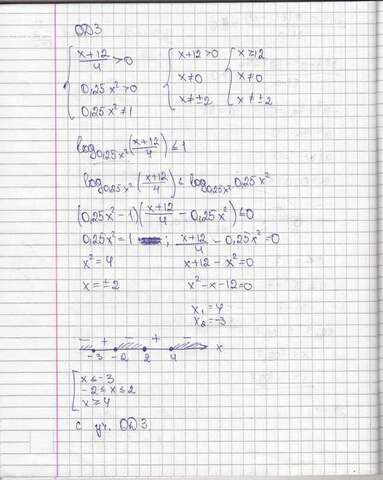 ОДЗ
{ (x+12)/4 > 0   { x+12>0   { x>12
{ 0,25x² > 0   { x≠0   { x≠0
{ 0,25x² ≠ 1   { x≠±2   { x≠±2
log_{0,25x²}((x+12)/4) ≤ 1
log_{0,25x²}((x+12)/4) ≤ log_{0,25x²} 0,25x²
(0,25x² - 1)((x+12)/4 - 0,25x²) ≤ 0
0,25x² = 1 ; (x+12)/4 - 0,25x² = 0
x² = 4   x+12 - x² = 0
x = ±2   x² - x - 12 = 0
x₁ = 4
x₂ = -3
- + - + -
-3 -2 2 4 x
[ x ≤ -3
[ -2 ≤ x ≤ 2
[ x ≥ 4
с уч. ОДЗ